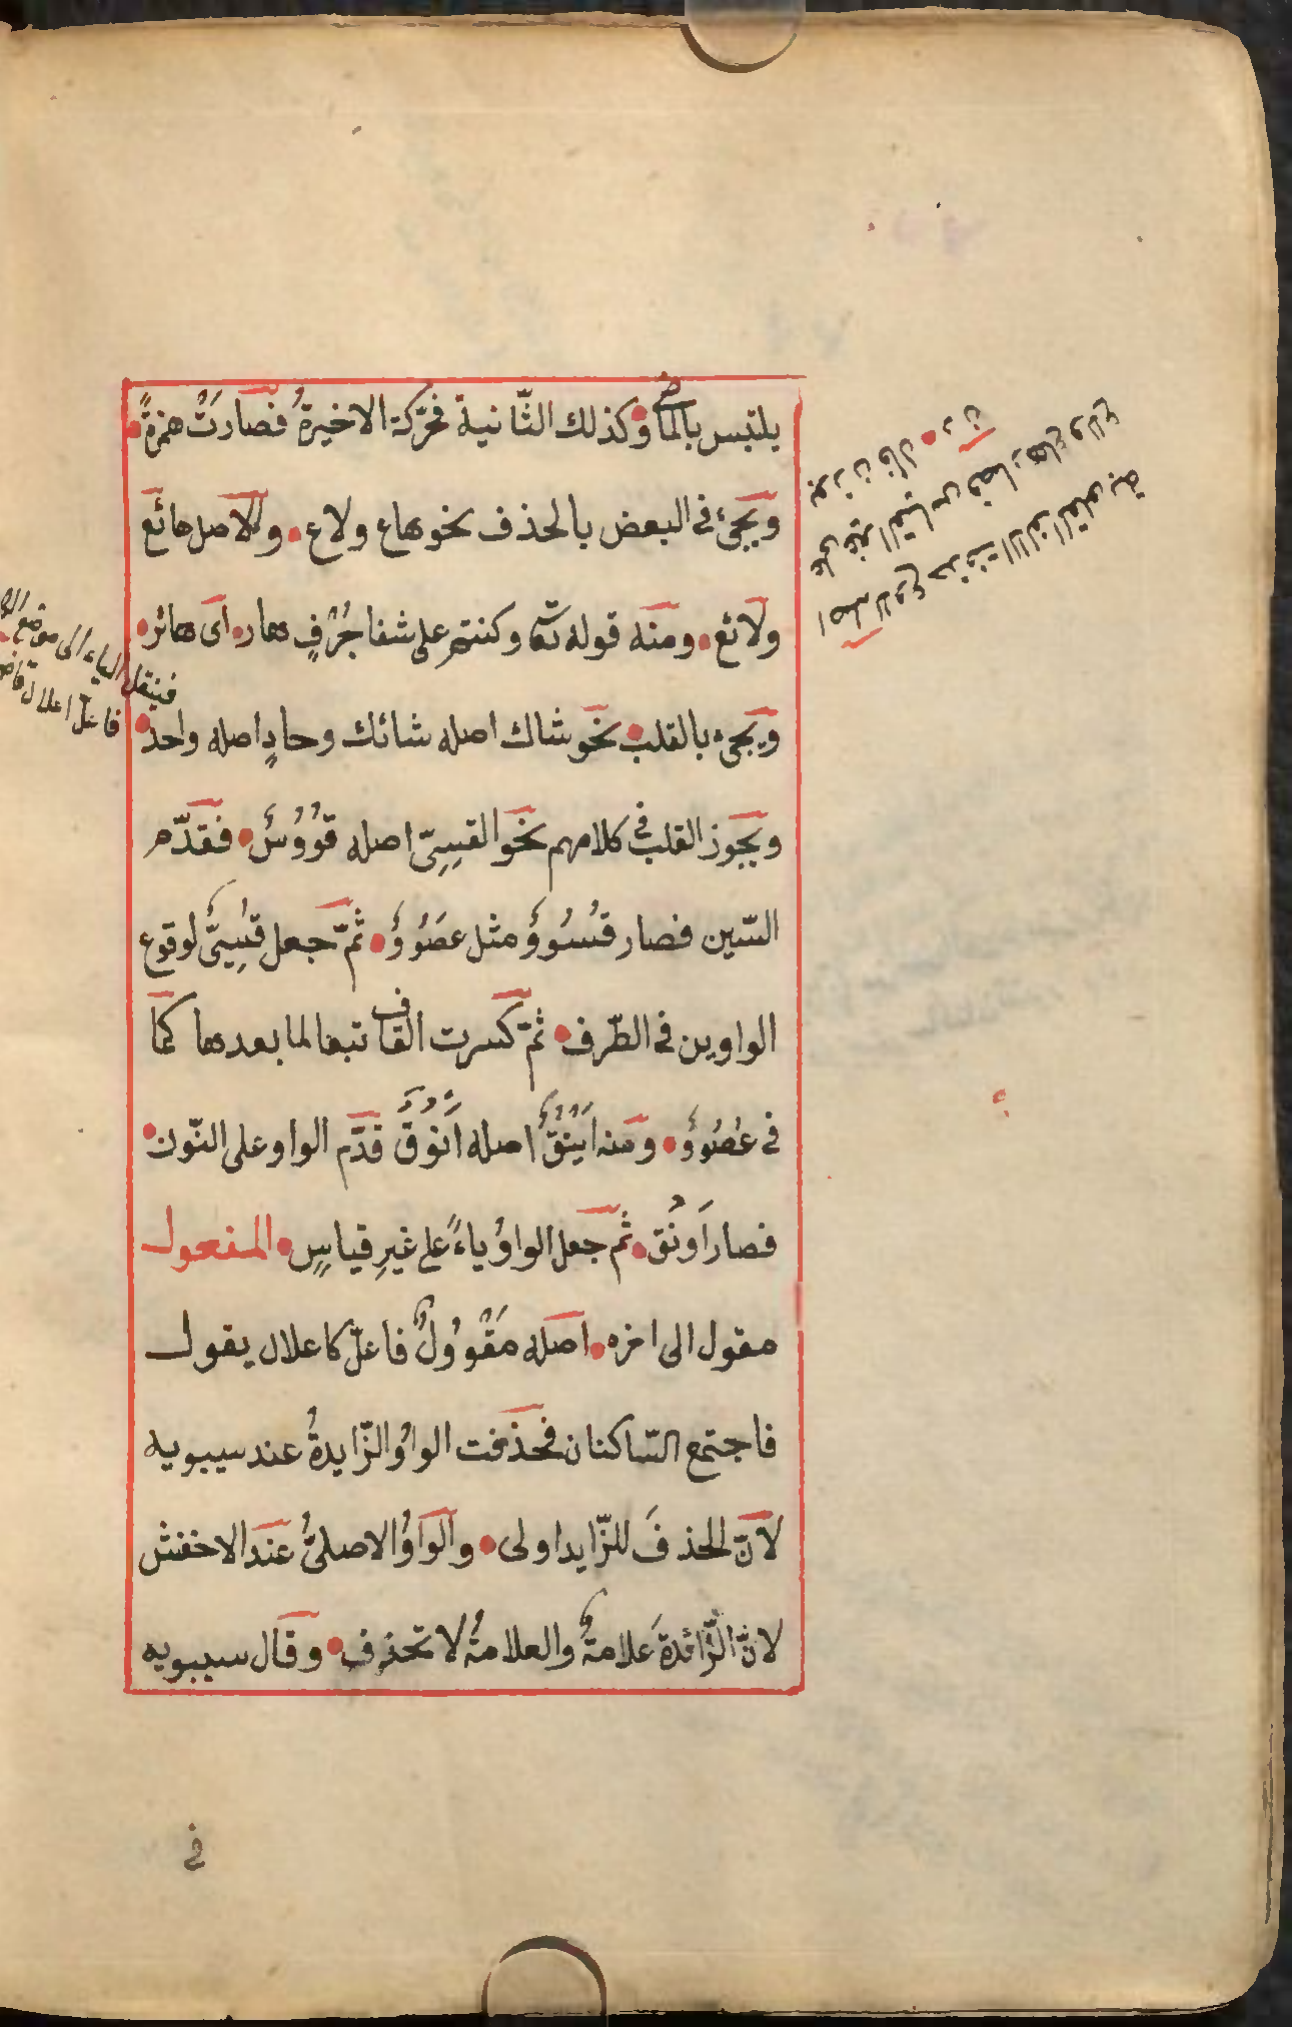 يلتبس بالماضى وكذلك الثّانية فحرّكة الاخيرةُ فصارتْ همزةً
ويجئ فى البعض بالحذف نحو هاع ولاع والاصل هائع
ولائع ومنه قوله تعّه وكنتم على شفا جُرُفٍ هار اى هائر
ويجئ بالقلب نحو شاك اصله شائك وحادٍ اصله واحد
ويجوز القلب فى كلامهم نحو القسِىّ اصله قوُوُسٌ فقدّم
السّين فصار قسُوُوٌ مثل عصُوُوٌ ثمّ جعل قسِيٌّ لوقوع
الواوين فى الطّرف ثمّ كسرت القاف تبعا لما بعدها كما
فى عُصُووٌ ومنه اَيْنُقٌ اصله اَنْوُقٌ قدّم الواو على النّون
فصار اَونُق ثمّ جعل الواوُ ياءً على غيرِ قياسٍ المفعول
مقول الى اخره اصله مَقْوُولٌ فاعلّ كاعلال يقول
فاجتمع السّاكنان فحذفت الواوُ الزّايدةُ عند سيبويه
لانّ الحذفَ للزّايد اولى والواوُ الاصلىُّ عند الاخفش
لانّ الزّائدةَ علامةٌ والعلامةُ لا تحذف وقال سيبويه
فى
اصله لاوع حذفت الالف القلوبة
على غير القياس فصار هاع ولاع
بوزن قال
فينقل الياء الى موضع
فاعلّ اعلال قاض